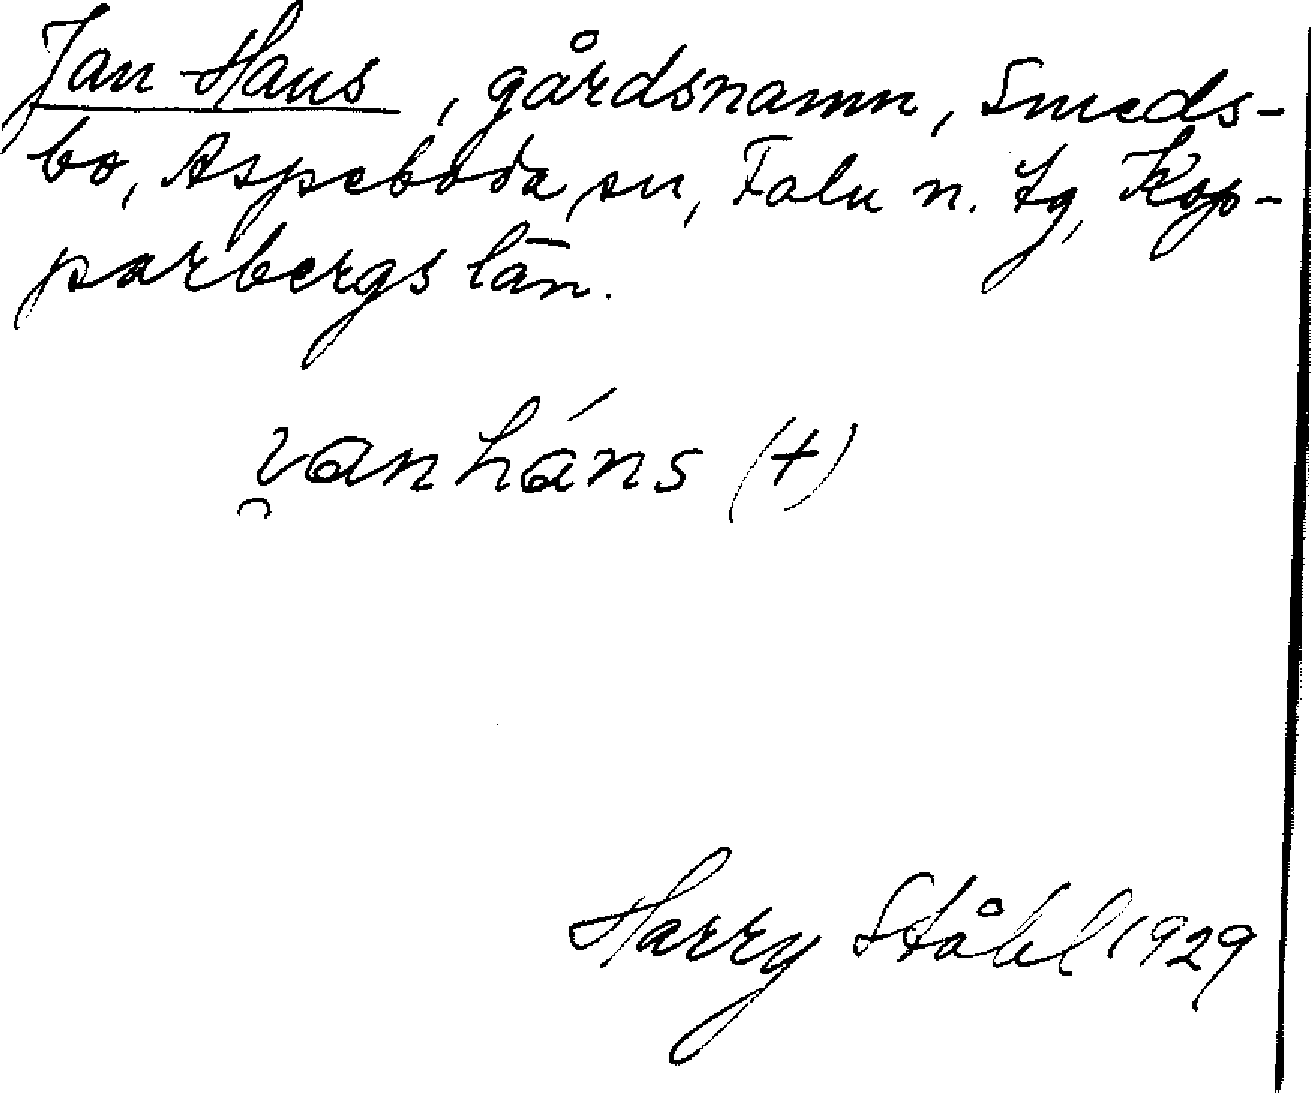 Jan-Hans, gårdsnamn, Smeds-
bo, Aspeboda sn, Falu n. tg, Kop-
parbergs län.
i̯anháns (+)
Harry Ståhl 1929